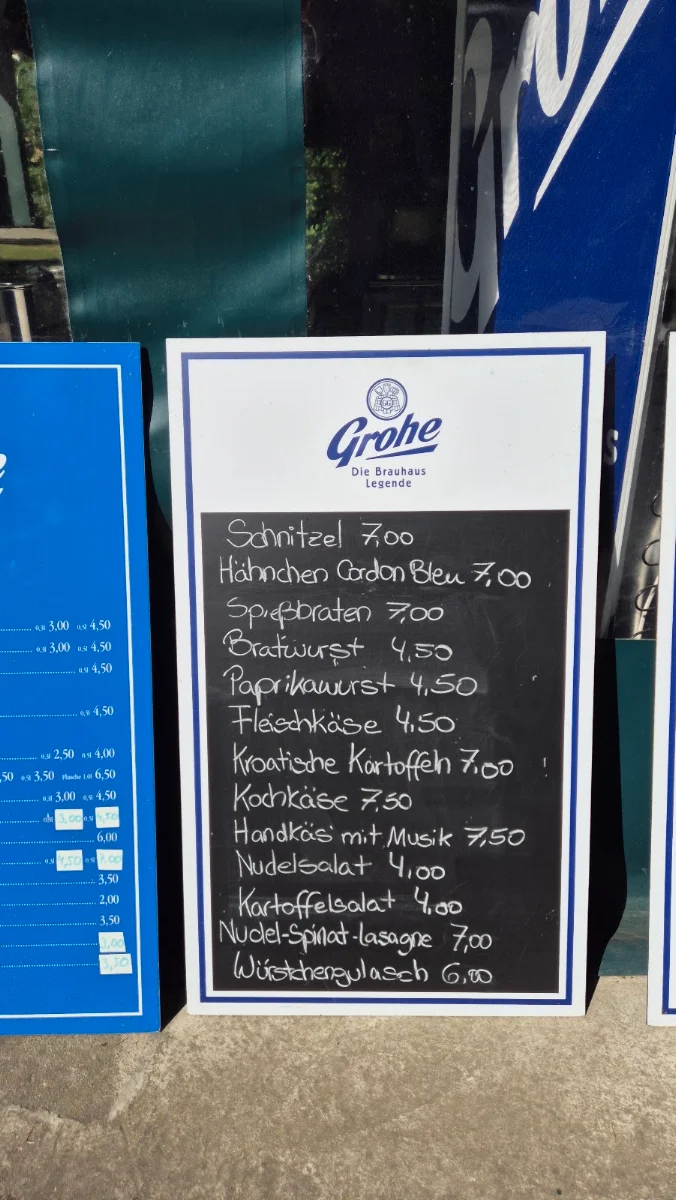 Gro
Grohe
Die Brauhaus
Legende
Schnitzel 7,00
Hähnchen Cordon Bleu 7,00
Spießbraten 7,00
Bratwurst 4,50
Paprikawurst 4,50
Fleischkäse 4,50
Kroatische Kartoffeln 7,00
Kochkäse 7,50
Handkäs mit Musik 7,50
Nudelsalat 4,00
Kartoffelsalat 4,00
Nudel-Spinat-lasagne 7,00
Würstchengulasch 6,00
e
0,3l 3,00 0,5l 4,50
0,3l 3,00 0,5l 4,50
0,5l 4,50
0,5l 4,50
0,3l 2,50 0,5l 4,00
,50 0,5l 3,50 Flasche 1,0l 6,50
0,3l 3,00 0,5l 4,50
3,00 4,50
6,00
4,50 7,00
3,50
2,00
3,50
3,00
3,50
s